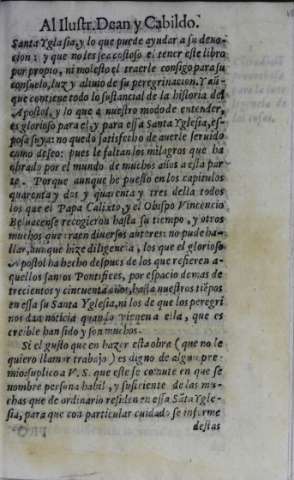 Al Ilustr. Dean y Cabildo.
Santa Yglesia, y lo que puede ayudar a su deuo-
cion: y que no les sea costoso el tener este libro
por propio, ni molesto el traerle consigo para su
consuelo, luz y aliuio de su peregrinacion. Y aũ-
que contiene todo lo sustancial de la historia del
Apostol, y lo que a nuestro modo de entender,
es glorioso para el, y para essa Santa Yglesia, es-
posa suya: no quedo satisfecho de auerle seruido
como deseo: pues le faltan los milagros que ha
obrado por el mundo de muchos años a esta par
te. Porque aunque he puesto en los capitulos
quarenta y dos y quarenta y tres della todos
los que el Papa Calixto, y el Obispo Vincencio
Beluacense recogieron hasta su tiempo, y otros
muchos que traen diuersos autores: no pude ha-
llar, aunque hize diligencia, los que el glorioso
Apostol ha hecho despues de los que refieren a-
quellos santos Pontifices, por espacio de mas de
trecientos y cincuenta años, hasta nuestros tiẽpos
en essa su Santa Yglesia, ni los de que los peregri
nos dan noticia quando vienen a ella, que es
creible han sido y son muchos.
Si el gusto que en hazer esta obra (que no le
quiero llamar trabajo) es digno de algun pre-
mio suplico a V.S. que este se comute en que se
nombre persona habil, y suficiente de las mu-
chas que de ordinario residen en essa Sãta Ygle-
sia, para que con particular cuidado se informe
destas